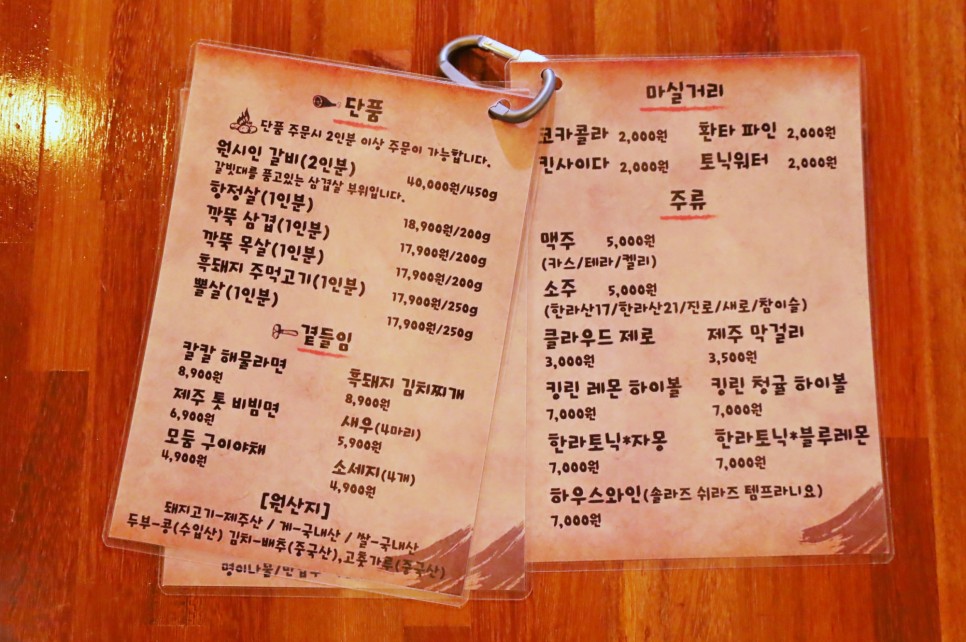 단품
단품 주문시 2인분 이상 주문이 가능합니다.
원시인 갈비(2인분) 40,000원/450g
갈빗대를 품고있는 삼겹살 부위입니다.
항정살(1인분) 18,900원/200g
깍뚝 삼겹(1인분) 17,900원/200g
깍뚝 목살(1인분) 17,900원/200g
흑돼지 주먹고기(1인분) 17,900원/250g
뽈살(1인분) 17,900원/250g
곁들임
칼칼 해물라면 흑돼지 김치찌개
8,900원 8,900원
제주 톳 비빔면 새우(4마리)
6,900원 5,900원
모둠 구이야채 소세지(4개)
4,900원 4,900원
[원산지]
돼지고기-제주산 / 게-국내산 / 쌀-국내산
두부-콩(수입산) 김치-배추(중국산),고춧가루(중국산)
명이나물/
마실거리
코카콜라 2,000원 환타 파인 2,000원
킨사이다 2,000원 토닉워터 2,000원
주류
맥주 5,000원
(카스/테라/켈리)
소주 5,000원
(한라산17/한라산21/진로/새로/참이슬)
클라우드 제로 제주 막걸리
3,000원 3,500원
킹린 레몬 하이볼 킹린 청귤 하이볼
7,000원 7,000원
한라토닉*자몽 한라토닉*블루레몬
7,000원 7,000원
하우스와인(솔라즈 쉬라즈 템프라니요)
7,000원